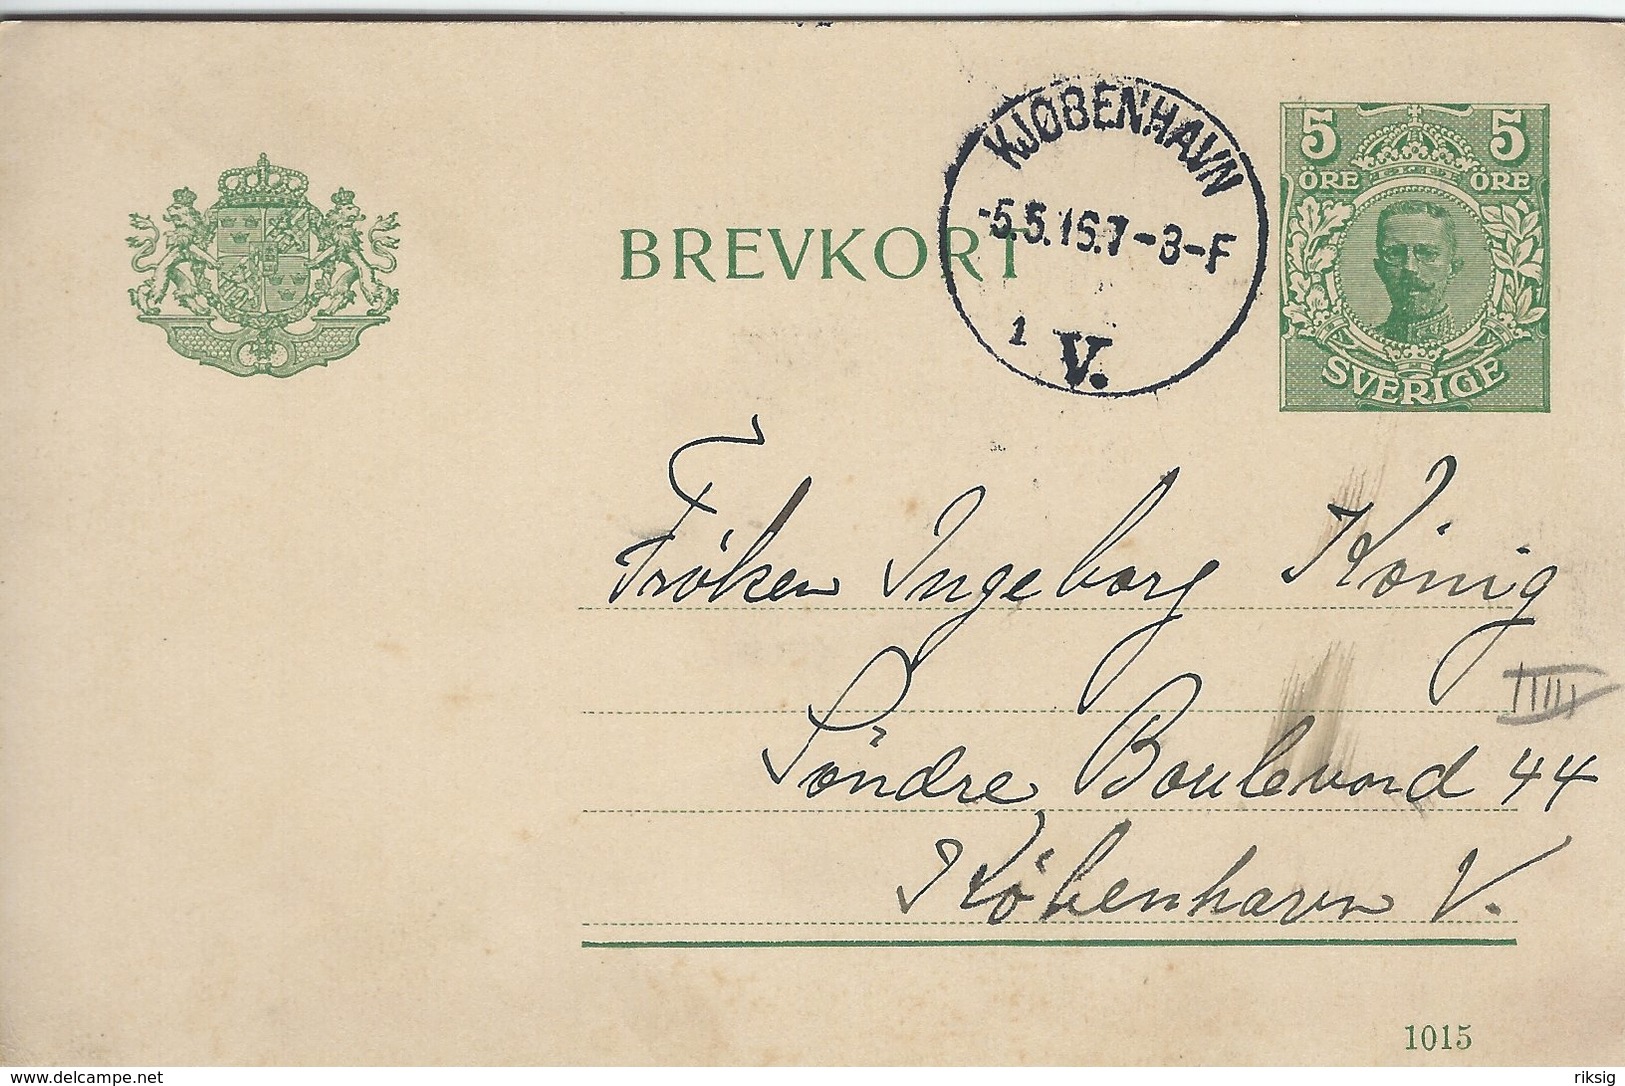 KJØBENHAVN
-5.5.16.7-8-F
1 V.
5 5
ÖRE ÖRE
SVERIGE
BREVKORT
Fröken Ingeborg König
IIIII
Söndre Boulevard 44
Köbenhavn V.
1015
www.delcampe.net
riksig